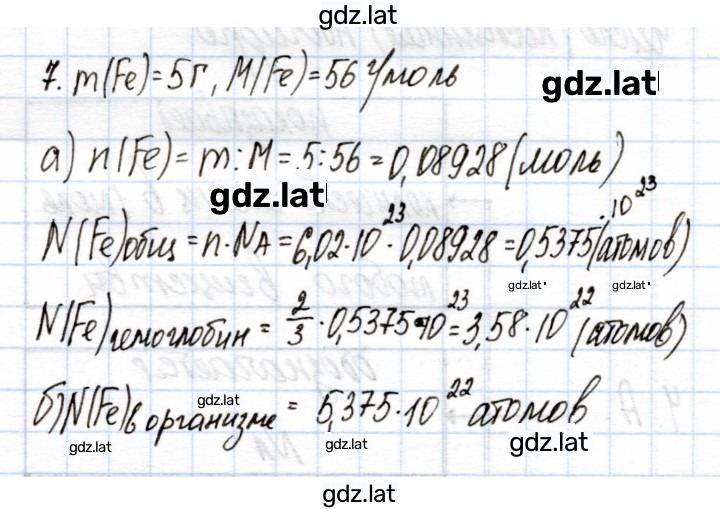 gdz.lat
7. m(Fe)=5г, M(Fe)=56 г/моль
gdz.lat
а) n(Fe)=m:M=5:56=0,08928(моль)
gdz.lat
N(Fe)общ=n·NA=6,02·10²³·0,08928=0,5375·10²³(атомов)
gdz.lat gdz.lat
N(Fe)гемоглобин=2/3·0,5375·10²³=3,58·10²²(атомов)
gdz.lat
б)N(Fe)в организме=5,375·10²² атомов
gdz.lat gdz.lat gdz.lat
gdz.lat